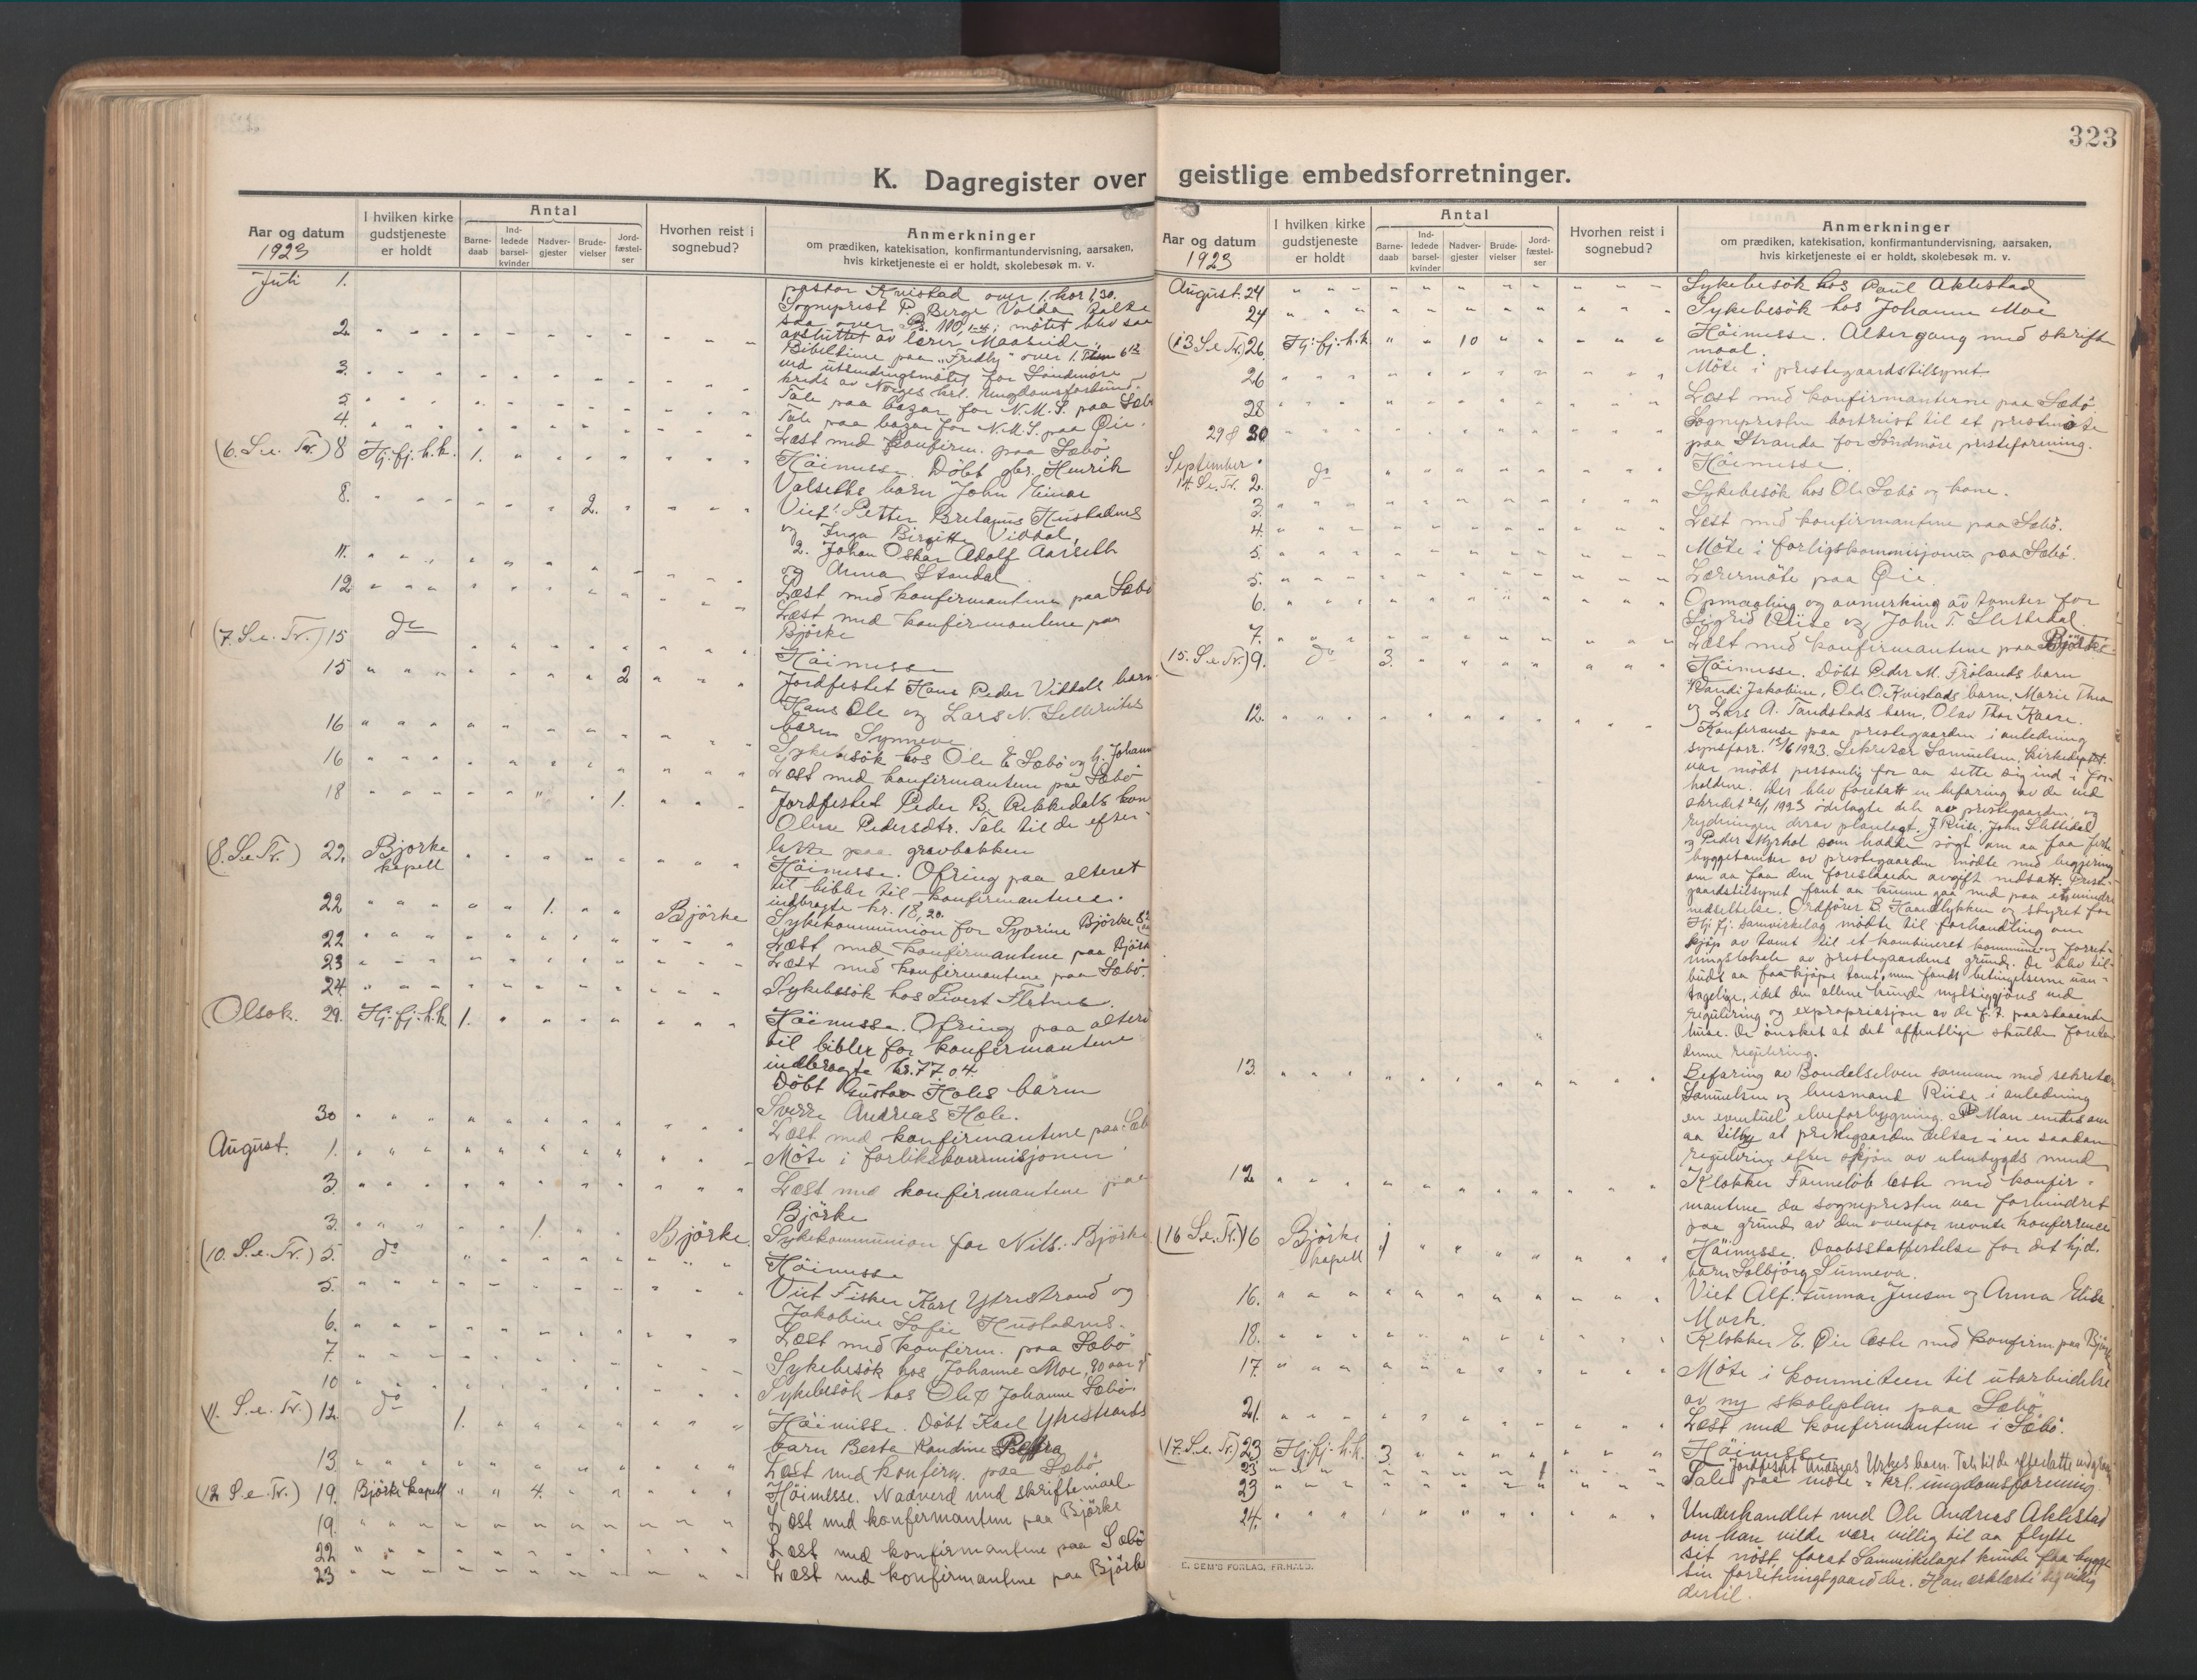 323
K. Dagregister over geistlige embedsforretninger.
Aar og datum
1923
I hvilken kirke gudstjeneste er holdt
Antal
Barne-daab
Ind-ledede barsel-kvinder
Nadver-gjester
Brude-vielser
Jord-fæstel-ser
Hvorhen reist i sognebud?
Anmerkninger
om prædiken, katekisation, konfirmantundervisning, aarsaken,
hvis kirketjeneste ei er holdt, skolebesøk m. v.
Juli 1.
pastor Kvistad over 1. kor 1,30.
Sogneprest P. Berge Volda talte
saa over Ps. 110, 1-4; mötet blev saa
avsluttet av lærer Maaseide.
2. Bibeltime paa "Fredly" over
ved utsendingsmötet for Söndmöre
kreds av Norges krl. Ungdomsforbund.
3. Tale paa bazar for N.M.S. paa Sæbö
5. Tale paa bazar for N.M.S. paa Öie.
4. Læst med konfirm. paa Sæbö
(6. S.e. Tr.) 8 Hj.fj.h.k. 1. Höimesse. Döbt gbr. Henrik
Valseths barn John Einar
8. 2. Viet: Petter Bretanus Hustadnes
og Inga Birgitte Viddal,
2. Johan Oskar Adolf Aarseth
og Anna Standal
11. Læst med konfirmantene paa Sæbö
12. Læst med konfirmantene paa
Björke
(7. S.e. Tr.) 15 do Höimesse
15 2 Jordfestet Hans Peder Viddals barn
Hans Ole og Lars N. Sætternes
barn Synneve
16 Sykebesök hos Ole E Sæbö og h. Johanne
16 Læst med konfirmantene paa Sæbö
18 1. Jordfestet Peder B. Rekkedals kone
Oline Pedersdtr. Tale til de efter-
latte paa gravbakken
(8. S.e Tr.) 22. Bjørke kapell Höimesse. Ofring paa alteret
til bibler til konfirmantene.
indbragte kr. 18,20.
22 1. Björke Sykekommunion for Syvrine Björke
22 Læst med konfirmantene paa Björke
23 Læst med konfirmantene paa Sæbö.
24. Sykebesök hos Sivert Fletnes.
Olsok. 29. Hj.fj.h.k. 1. Höimesse. Ofring paa alteret
til bibler for konfirmantene
indbragte kr. 77.04.
Döbt Gustav Holes barn
Sverre Andreas Hole.
30 Læst med konfirmantene paa Sæbö
August. 1. Möte i forlikskommisjonen
3. Læst med konfirmantene paa
Björke
3. 1. Björke. Sykekommunion for Nils Björke
(10. S.e. Tr.) 5. do Höimesse
5. Viet Fisker Karl Ytrestrand og
Jakobine Sofie Hustadnes.
6. Læst med konfirm. paa Sæbö
7. Sykebesök hos Johanne Moe, 90 aar
10 Sykebesök hos Ole & Johanne Sæbö.
(11. S.e. Tr.) 12. do 1. Höimesse. Döbt Karl Ytrestrands
barn Berta Kandine Petra
13. Læst med konfirm. paa Sæbö
(12 S.e. Tr.) 19. Björke kapell 4. Höimesse. Nadverd med skriftemaal
19. Læst med konfirmantene paa Björke
22 Læst med konfirmantene paa Sæbö
23 Læst med konfirmantene paa Björke
Aar og datum
1923
I hvilken kirke gudstjeneste er holdt
Antal
Barne-daab
Ind-ledede barsel-kvinder
Nadver-gjester
Brude-vielser
Jord-fæstel-ser
Hvorhen reist i sognebud?
Anmerkninger
om prædiken, katekisation, konfirmantundervisning, aarsaken,
hvis kirketjeneste ei er holdt, skolebesøk m. v.
August. 24 Sykebesök hos Paul Aklestad
24 Sykebesök hos Johanne Moe
(13 S.e Tr.) 26. Hj.fj.h.k 10 Höimesse. Altergang med skrifte
maal.
26 Möte i prestegaardstilsynet.
28 Læst med konfirmanterne paa Sæbö.
29 & 30 Sognepresten bortreist til et prestemöte
paa Stranda for Söndmöre presteforening.
September.
14. S.e. Tr. 2. do Höimesse.
3. Sykebesök hos Ole Sæbö og kone.
4. Læst med konfirmantene paa Sæbö.
5. Möte i forligskommisjonen paa Sæbö.
5. Lærermöte paa Öie.
6. Opmaaling og avmerking av tomter for
Sigrid Riise og John T Slettedal.
7. Læst med konfirmantene paa Björke
(15. S.e Tr.) 9. do 3. Höimesse. Döbt Peder M. Frölands barn
Randi Jakobine, Ole O. Kvistads barn, Marie Thea
og Lars A. Tandstads barn, Olav Thor Kaare.
12. Konferanse paa prestegaarden i anledning
synsforr. 15/6 1923. Sekretær Samuelsen, kirkedeptet.
var mödt personlig for aa sette sig ind i for-
holdene. Der blev foretatt en befaring av de ved
skredet 1923 ödelagte dele av prestegaarden og
rydningen derav planlagt. J. Riise, John Slettedal
og Peder Myrhol som hadde sögt om aa faa feste
byggetomter av prestegaarden mödte med begjering
om aa faa den foreslaaede avgift nedsatt. Preste-
gaardstilsynet fant aa kunne gaa med paa en mindre
nedsettelse. Ordförer B. Haandlykken og styret for
Hj.fj. samvirkelag mödte til forhandling om
kjöp av tomt til et kombineret kommune- og forret-
ningslokale av prestegaardens grund. De blev til-
budt aa faa kjöpe tomt, men fandt betingelserne uan-
tagelige, idet den allene kunde nyttiggjöres ved
regulering og expropriasjon av de f.t. paastaaende
huse. De önsket at det offentlige skulde foreta
denne regulering.
13. Befaring av Bondeelven sammen med sekretær
Samuelsen og husmand Riise i anledning
en eventuel elveforbygning. Man enedes om
aa tilby at prestegaarden deltar i en saadan
regulering efter skjön av utenbygds mænd
12 Klokker Fanneløb læste med konfir-
mantene da sognepresten var forhindret
paa grund av den ovenfor nevnte konferrence
(16 S.e. Tr.) 16 Björke kapell 1 Höimesse. Daabsstatfestelse for det hj.d.
barn Solbjörg Sunneva.
16. Viet Alf Gunnar Jensen og Anna Elise
Mork.
18. Klokker E. Öie læste med konfirm paa Björke
17. Möte i kommiteen til utarbeidelse
av ny skoleplan paa Sæbö
21. Læst med konfirmantene i Sæbö.
(17. S.e. Tr.) 23 Hj.fj.h.k. 3. Höimesse
23 1 Jordfestet Andreas Urkes barn. Tale til de efterlatte ved graven
23 Tale paa möte i krl. ungdomsforening.
24. Underhandlet med Ole Andreas Aklestad
om han vilde være villig til aa flytte
sit nöst, forat Samvirkelaget kunde faa bygge
sin forretningsgaard der. Han erklærte sig villig
dertil.
E. SEM'S FORLAG, FR.HALD.